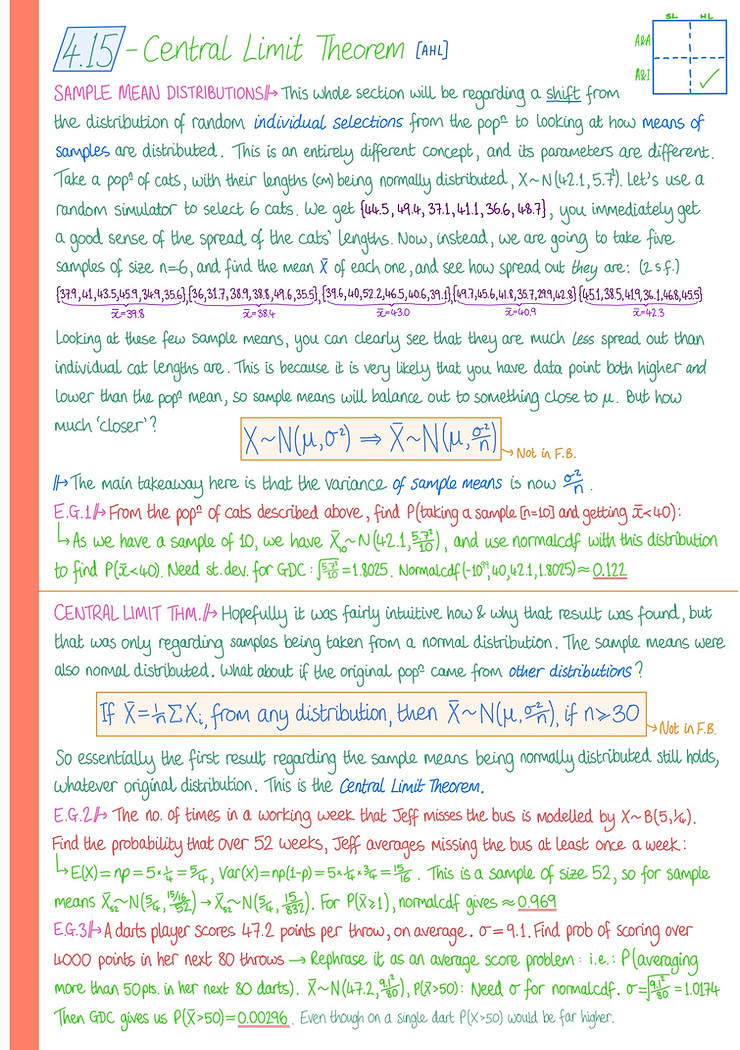 4.15 - Central Limit Theorem [AHL]
SL HL
A&A
A&I ✓
SAMPLE MEAN DISTRIBUTIONS//→ This whole section will be regarding a shift from
the distribution of random individual selections from the popⁿ to looking at how means of
samples are distributed. This is an entirely different concept, and its parameters are different.
Take a popⁿ of cats, with their lengths (cm) being normally distributed, X~N(42.1, 5.7²). Let's use a
random simulator to select 6 cats. We get {44.5, 49.4, 37.1, 41.1, 36.6, 48.7}, you immediately get
a good sense of the spread of the cats' lengths. Now, instead, we are going to take five
samples of size n=6, and find the mean x̄ of each one, and see how spread out they are: (2 s.f.)
{37.9, 41, 43.5, 45.9, 34.9, 35.6}, {36, 31.7, 38.9, 38.8, 49.6, 35.5}, {39.6, 40, 52.2, 46.5, 40.6, 39.1}, {49.7, 45.6, 41.8, 35.7, 29.9, 42.8} {45.1, 38.5, 41.9, 36.1, 46.8, 45.5}
x̄=39.8 x̄=38.4 x̄=43.0 x̄=40.9 x̄=42.3
Looking at these few sample means, you can clearly see that they are much less spread out than
individual cat lengths are. This is because it is very likely that you have data point both higher and
lower than the popⁿ mean, so sample means will balance out to something close to μ. But how
much 'closer'?
X~N(μ, σ²) ⇒ X̄~N(μ, σ²/n) → Not in F.B.
//→ The main takeaway here is that the variance of sample means is now σ²/n.
E.G.1//→ From the popⁿ of cats described above, find P(taking a sample [n=10] and getting x̄<40):
↳ As we have a sample of 10, we have X̄₁₀~N(42.1, 5.7²/10), and use normalcdf with this distribution
to find P(x̄<40). Need st.dev. for GDC: √(5.7²/10) = 1.8025. Normalcdf(-10⁹⁹, 40, 42.1, 1.8025) ≈ 0.122
CENTRAL LIMIT THM.//→ Hopefully it was fairly intuitive how & why that result was found, but
that was only regarding samples being taken from a normal distribution. The sample means were
also normal distributed. What about if the original popⁿ came from other distributions?
If X̄ = 1/n ΣXᵢ, from any distribution, then X̄~N(μ, σ²/n), if n⩾30 → Not in F.B.
So essentially the first result regarding the sample means being normally distributed still holds,
whatever original distribution. This is the Central Limit Theorem.
E.G.2//→ The no. of times in a working week that Jeff misses the bus is modelled by X~B(5, ¼).
Find the probability that over 52 weeks, Jeff averages missing the bus at least once a week:
↳ E(X) = np = 5×¼ = 5/4, Var(X) = np(1-p) = 5×¼×¾ = 15/16. This is a sample of size 52, so for sample
means X̄₅₂~N(5/4, 15/16/52) → X̄₅₂~N(5/4, 15/832). For P(x̄⩾1), normalcdf gives ≈ 0.969
E.G.3//→ A darts player scores 47.2 points per throw, on average. σ=9.1. Find prob of scoring over
4000 points in her next 80 throws → Rephrase it as an average score problem: i.e.: P(averaging
more than 50pts. in her next 80 darts). X̄~N(47.2, 9.1²/80), P(x̄>50): Need σ for normalcdf. σ=√(9.1²/80) = 1.0174
Then GDC gives us P(x̄>50) = 0.00296. Even though on a single dart P(X>50) would be far higher.